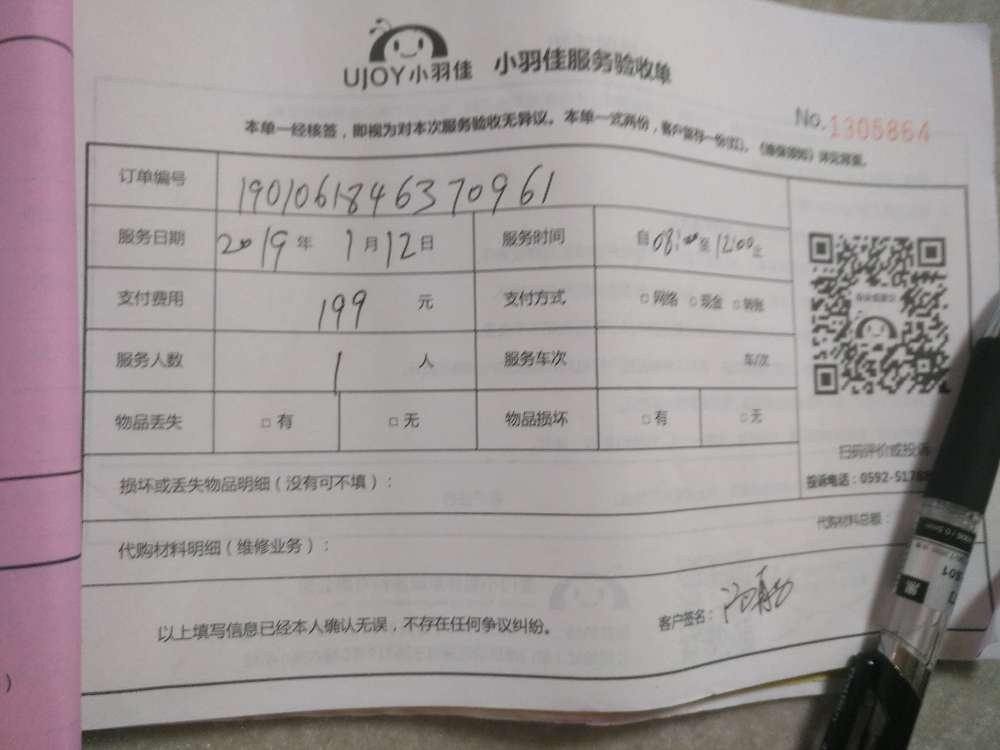 UJOY小羽佳 小羽佳服务验收单
No.1305864
本单一经核签，即视为对本次服务验收无异议。本单一式两份，客户留存一份(红)。《维保须知》详见背面。
订单编号 1901061846370961
服务日期 2019年 1月12日 服务时间 自08:00至12:00止
支付费用 199 元 支付方式 □网络 □现金 □转账
服务人数 1 人 服务车次 车/次
物品丢失 □有 □无 物品损坏 □有 □无
扫码评价或投诉
投诉电话：0592-517
损坏或丢失物品明细（没有可不填）：
代购材料明细（维修业务）： 代购材料总额：
以上填写信息已经本人确认无误，不存在任何争议纠纷。 客户签名：